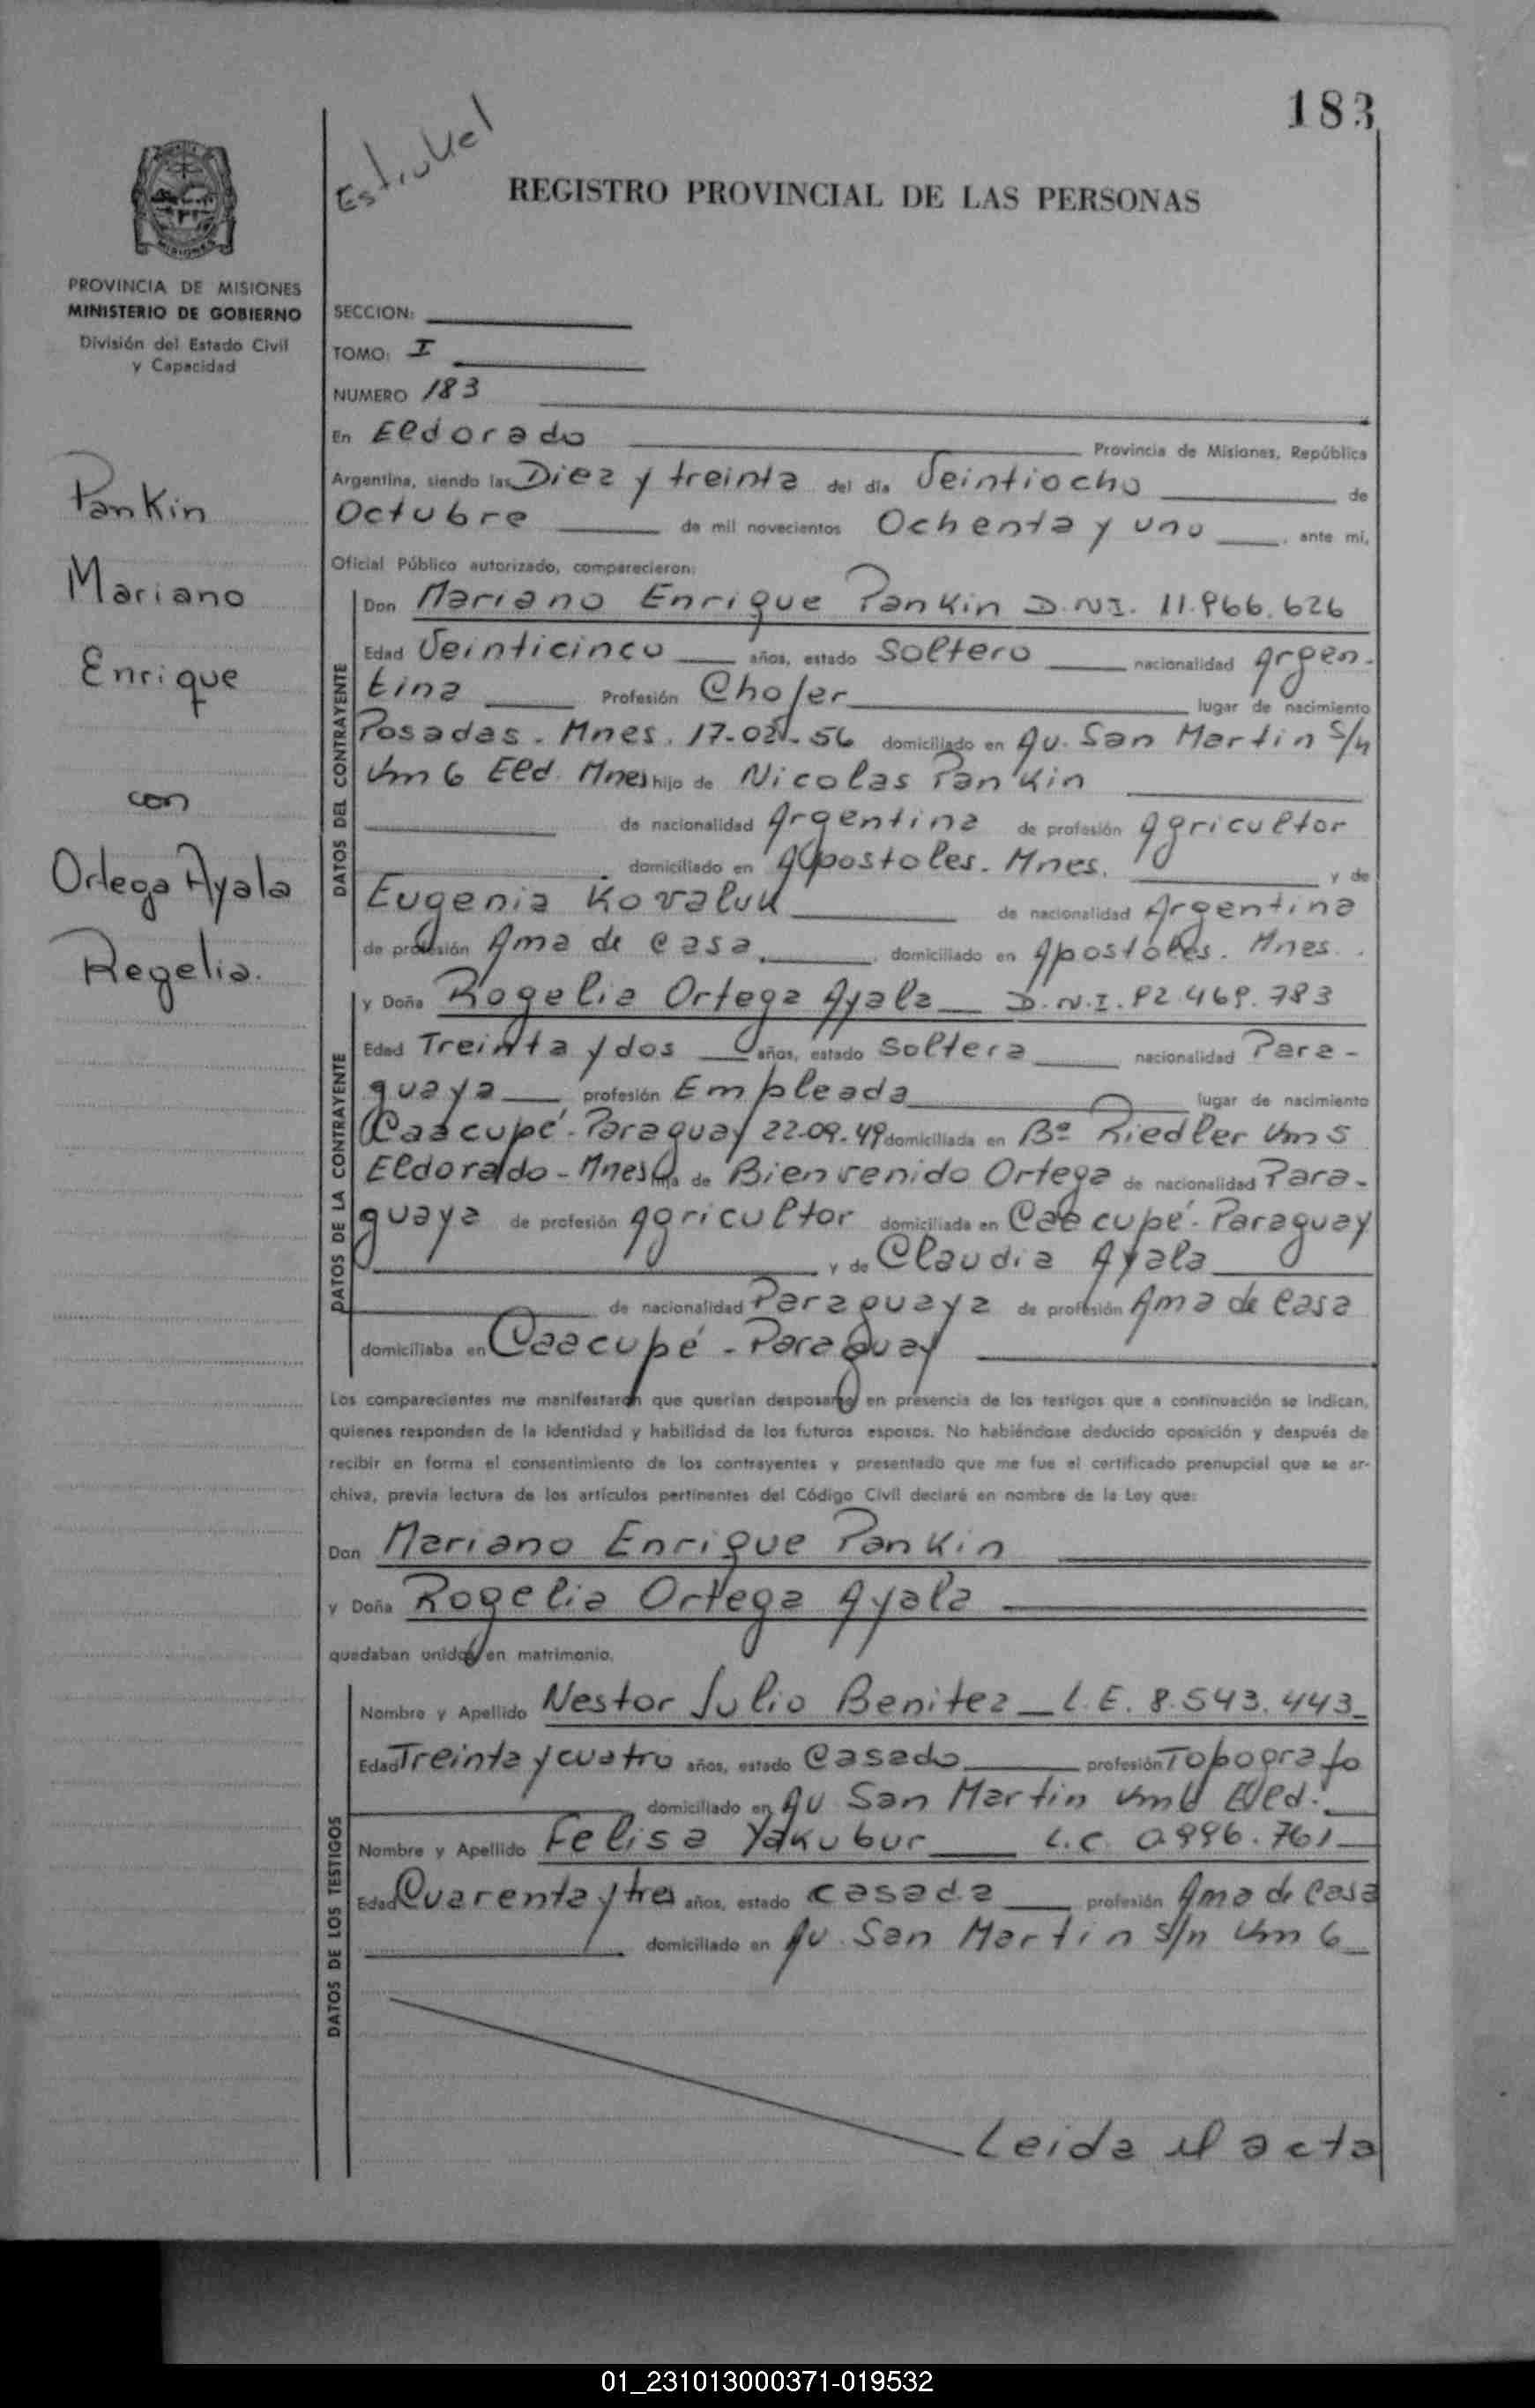 183
Estiuvel
REGISTRO PROVINCIAL DE LAS PERSONAS
PROVINCIA DE MISIONES
MINISTERIO DE GOBIERNO
División del Estado Civil
y Capacidad
Pankin
Mariano
Enrique
con
Ortega Ayala
Rogelia.
SECCION:
TOMO: I
NUMERO 183
En Eldorado Provincia de Misiones, República
Argentina, siendo las Diez y treinta del día Veintiocho de
Octubre de mil novecientos Ochenta y uno, ante mí,
Oficial Público autorizado, comparecieron:
DATOS DEL CONTRAYENTE
Don Mariano Enrique Pankin D.N.I. 11.966.626
Edad Veinticinco años, estado Soltero nacionalidad Argen-
tina Profesión Chofer lugar de nacimiento
Posadas. Mnes. 17-02-56 domiciliado en Av. San Martin S/n
Km 6 Eld. Mnes hijo de Nicolas Pankin
de nacionalidad Argentina de profesión Agricultor
domiciliado en Apostoles. Mnes. y de
Eugenia Kovaluk de nacionalidad Argentina
de profesión Ama de casa, domiciliado en Apostoles. Mnes.
DATOS DE LA CONTRAYENTE
y Doña Rogelia Ortega Ayala D.N.I. 92.469.783
Edad Treinta y dos años, estado Soltera nacionalidad Para-
guaya profesión Empleada lugar de nacimiento
Caacupé-Paraguay 22-09-49 domiciliada en Bº Riedler Km 5
Eldorado-Mnes hija de Bienvenido Ortega de nacionalidad Para-
guaya de profesión Agricultor domiciliada en Caacupé-Paraguay
y de Claudia Ayala
de nacionalidad Paraguaya de profesión Ama de casa
domiciliaba en Caacupé-Paraguay
Los comparecientes me manifestaron que querían desposarse en presencia de los testigos que a continuación se indican,
quienes responden de la identidad y habilidad de los futuros esposos. No habiéndose deducido oposición y después de
recibir en forma el consentimiento de los contrayentes y presentado que me fue el certificado prenupcial que se ar-
chiva, previa lectura de los artículos pertinentes del Código Civil declaré en nombre de la Ley que:
Don Mariano Enrique Pankin
y Doña Rogelia Ortega Ayala
quedaban unidos en matrimonio.
DATOS DE LOS TESTIGOS
Nombre y Apellido Nestor Julio Benitez L.E. 8.543.443
Edad Treinta y cuatro años, estado Casado profesión Topografo
domiciliado en Av San Martin Km 6 Eld.
Nombre y Apellido Felisa Yakubur L.C. 0.996.761
Edad Cuarenta y tres años, estado casada profesión Ama de Casa
domiciliado en Av. San Martin s/n Km 6
Leida el acta
01_231013000371-019532